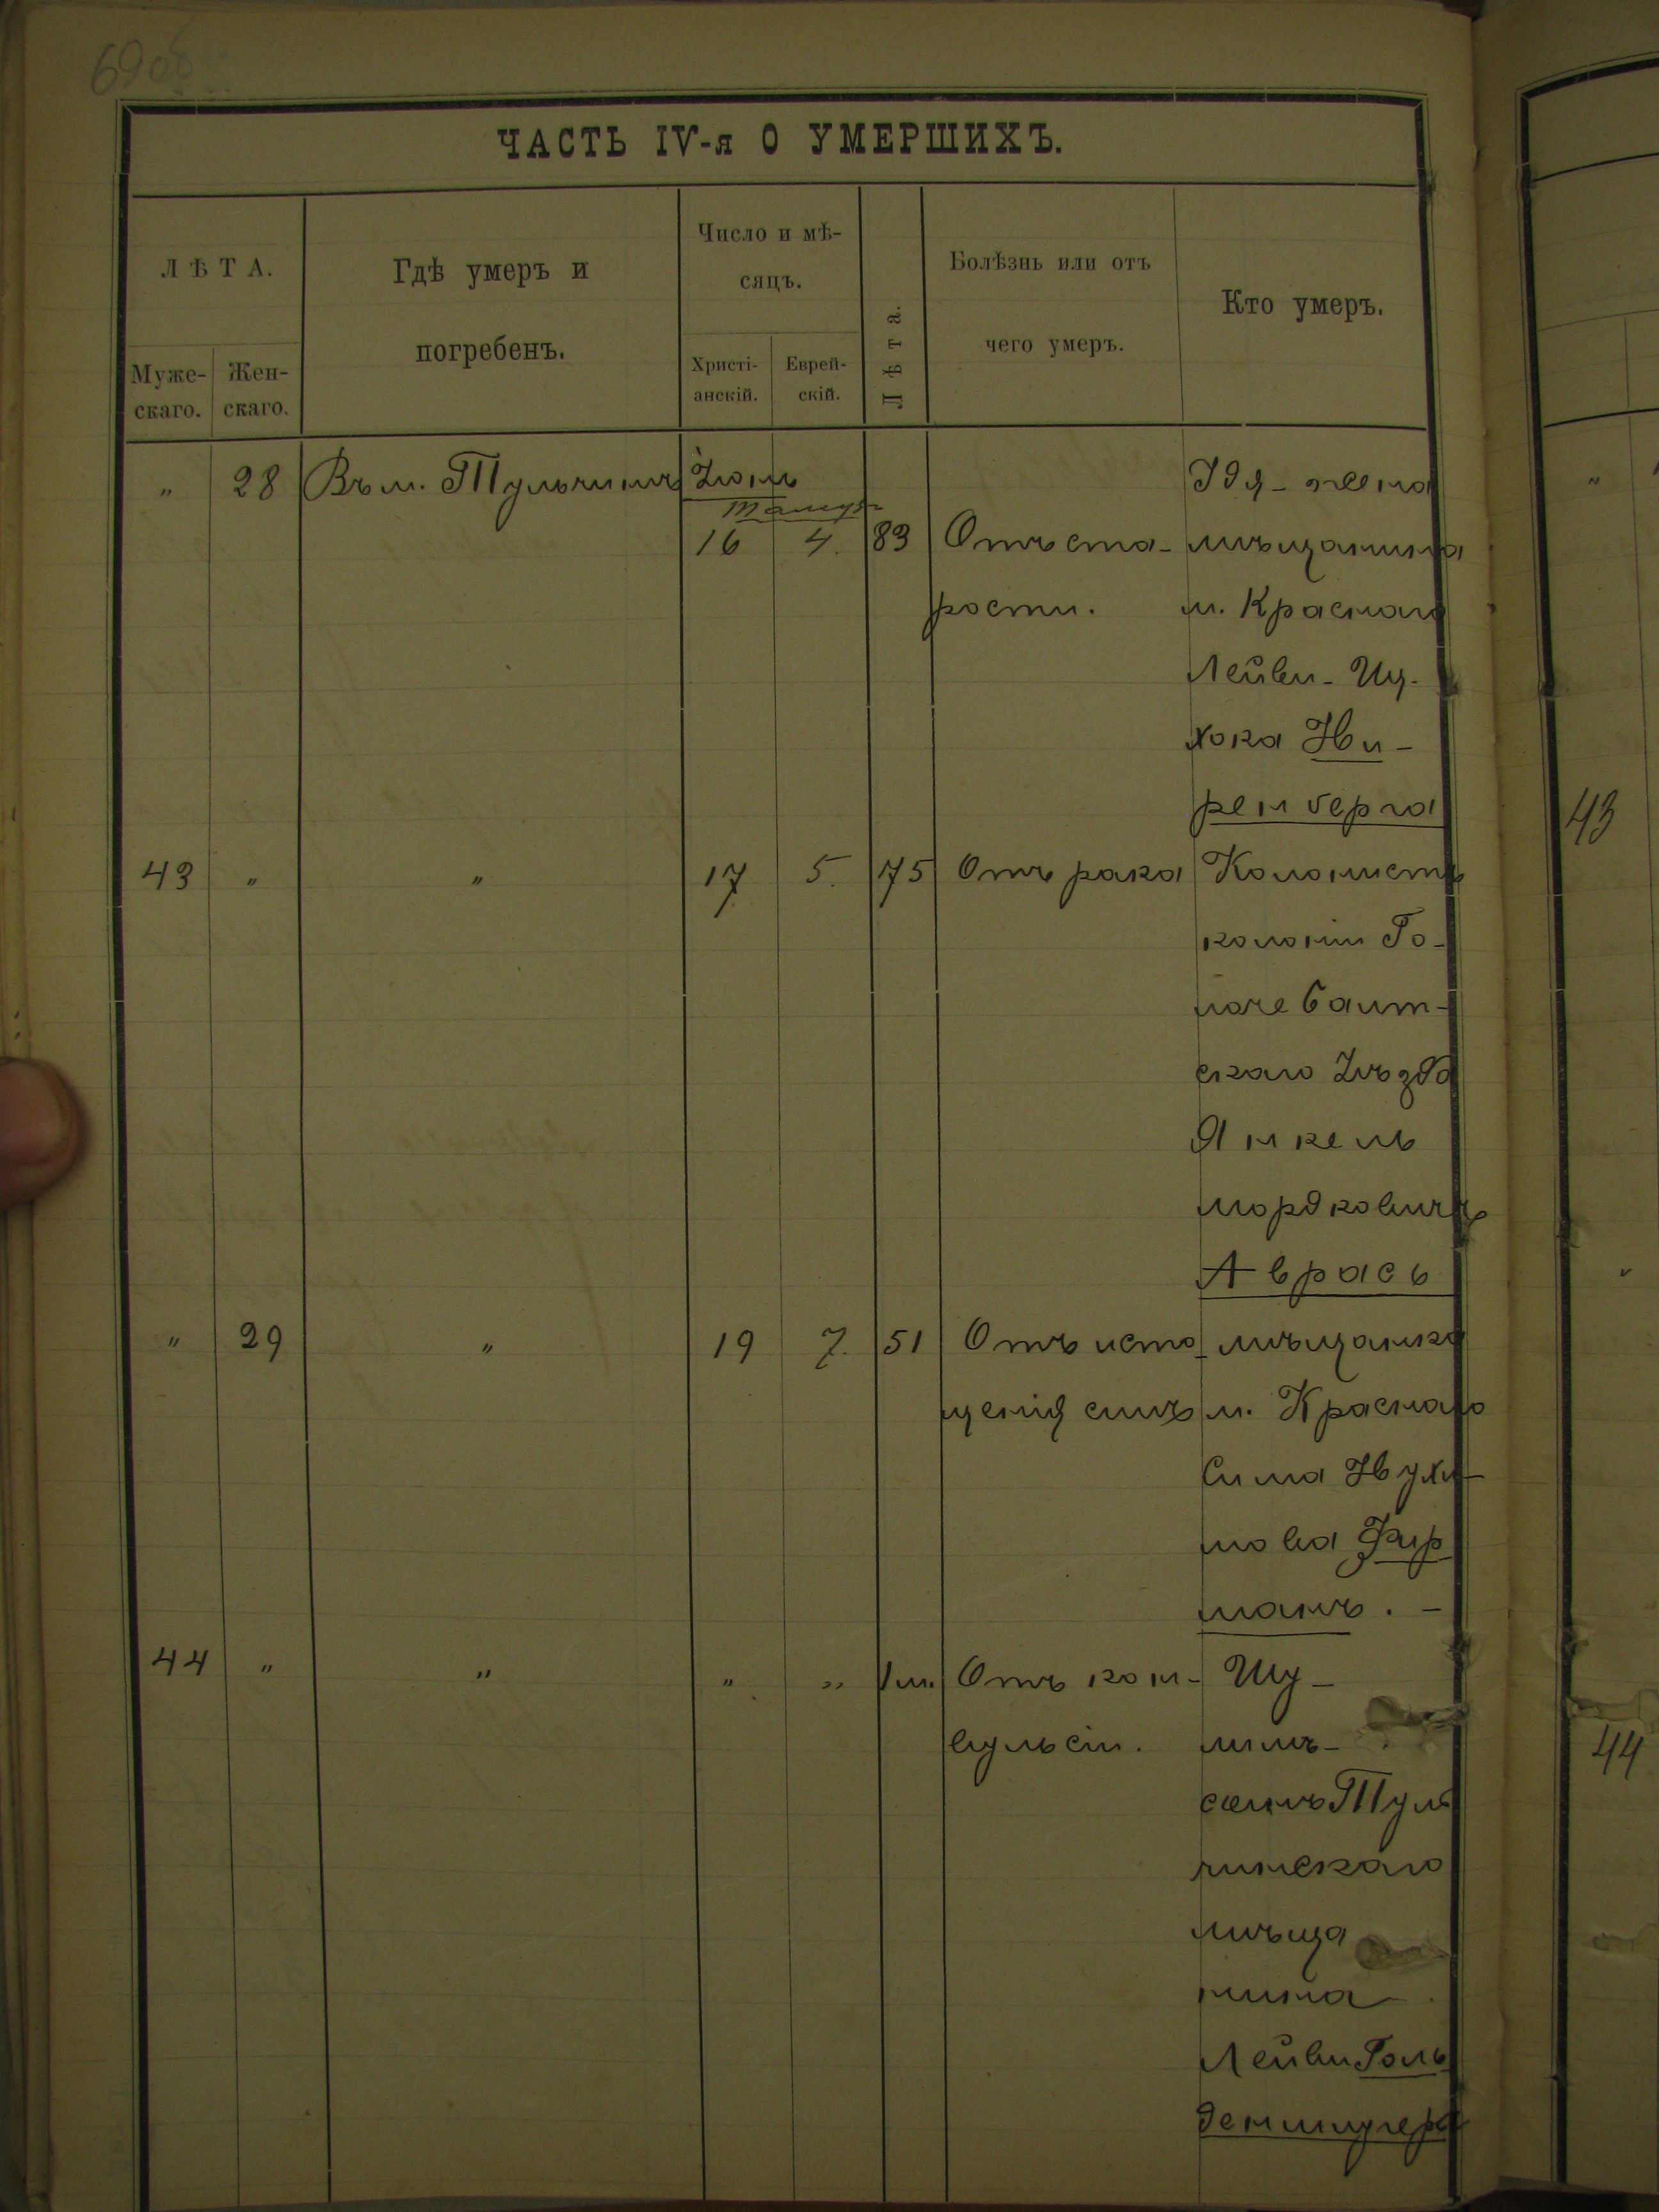 69об
ЧАСТЬ IV-я О УМЕРШИХЪ.
ЛѢТА.
Муже-
скаго.
Жен-
скаго.
Гдѣ умеръ и
погребенъ.
Число и мѣ-
сяцъ.
Христі-
анскій.
Еврей-
скій.
Лѣта.
Болѣзнь или отъ
чего умеръ.
Кто умеръ.
" 28 Въ м. Тульчинѣ Іюнь Идя - жена
Тамузъ
16 4. 83 Отъ ста- мѣщанина
рости. м. Краснаго
Лейви-Иц-
хока Ни-
ренберга
43 " " 17 5. 75 Отъ рака Колонистъ
колоніи Го-
скаго уѣзда
Янкель
Мордковичъ
Аврасъ
" 29 " 19 7. 51 Отъ исто- мѣщанка
щенія силъ м. Краснаго
Сима Нухи-
мова Фир
манъ. -
44 " " " " 1 м. Отъ кон- Шу-
вульсіи. лимъ-
сынъ Туль
чинскаго
мѣща
нина
Лейви Голь
деншлугера
"
43
"
44